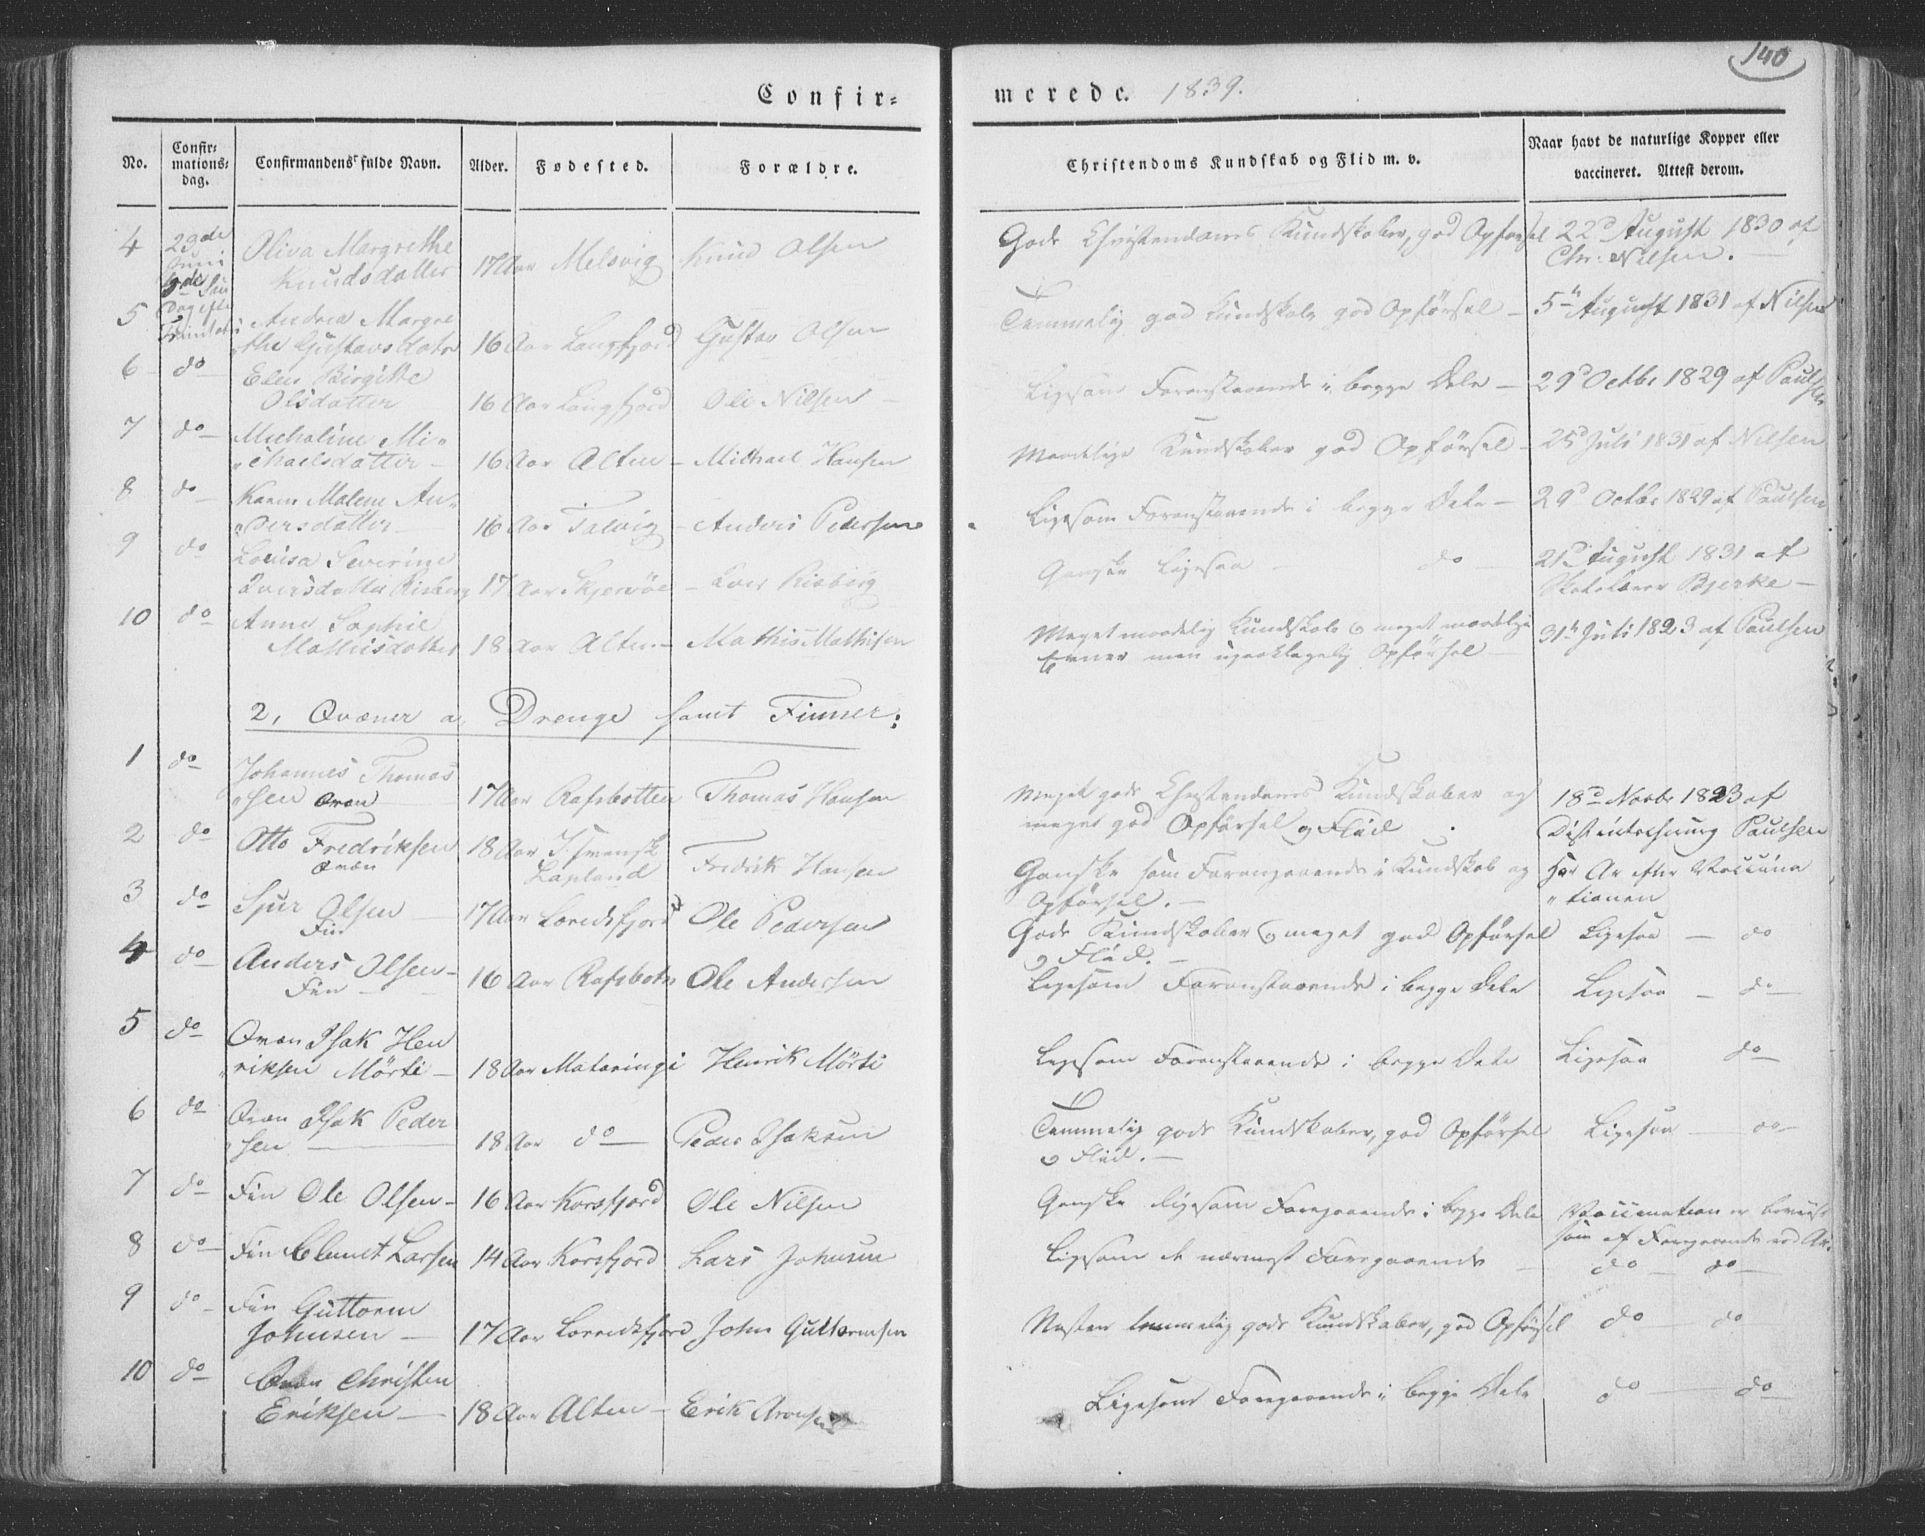 140
Confir-
merede. 1839.
No.
Confir-
mations-
dag.
Confirmandens fulde Navn.
Alder.
Fødested.
Forældre.
Christendoms Kundskab og Flid m. v.
Naar havt de naturlige Kopper eller
vaccineret. Attest derom.
4 23de Juni Oliva Margrethe
Knudsdatter 17 Aar Melsvig Knud Olsen
Gode Christendoms Kundskaber, god Opførsel 22d August 1830 af
Chr. Nilsen.
5 Andrea Margre
the Gustavsdatr 16 Aar Langfjord Gustav Olsen
Temmelig god Kundskab god Opførsel 5te August 1831 af Nilsen
6 do Elen Birgitte
Olsdatter 16 Aar Langfjord Ole Nilsen
Ligesom Foranstaaende i begge Dele 29d Octbr 1829 af Paulsen
7 do Micheline Mi-
chaelsdatter 16 Aar Alten Michael Hansen
Maadelige Kundskaber god Opførsel 25d Juli 1831 af Nilsen
8 do Karen Malene An-
dersdatter 16 Aar Talvig Anders Pedersen
Ligesom Foranstaaende i begge Dele 29d Octbr 1829 af Paulsen
9 do Lovisa Severine
Iversdatter Risberg 17 Aar Skjervøe Iver Risberg
Ganske Ligesaa do 21d August 1831 af
Bjerke
10 do Anne Sophie
Mathisdatter 18 Aar Alten Mathis Mathisen
Meget maadelig Kundskab og meget maadelige
Evner men upaaklagelig Opførsel 31te Juli 1823 af Paulsen
2, Qvæner a, Drenge samt Finner:
1 do Johannes Thomas
sen Qvæn 17 Aar Rafsbotten Thomas Hansen
Meget gode Christendoms Kundskaber og
meget god Opførsel og Fliid 18d Novbr 1823 af
Paulsen
2 do Otto Fredriksen
Qvæn 18 Aar I Svensk
Lapland Fredrik Hansen
Ganske som Foregaaende i Kundskab og
Opførsel. Har Ar efter Vaccina
tionen
3 do Sjur Olsen
Fin 17 Aar Leredsfjord Ole Pedersen
Gode Kundskaber og meget god Opførsel
og Fliid. Ligesaa do
4 do Anders Olsen
Fin 16 Aar Rafsbotn Ole Andersen
Ligesom Foranstaaende i begge Dele Ligesaa do
5 do Qvæn Isak Hen
riksen Mörti 18 Aar Mataringi Henrik Mörti
Ligesom Foranstaaende i begge Dele Ligesaa do
6 do Qvæn Isak Peder
sen 18 Aar do Peder Isaksen
Temmelig gode Kundskaber, god Opførsel
og Fliid. Ligesaa do
7 do Fin Ole Olsen 16 Aar Korsfjord Ole Nilsen
Ganske ligesom Foregaaende i begge Dele Vaccination er beviist
som af Foregaaende ved Ar.
8 do Fin Clemet Larsen 14 Aar Korsfjord Lars Johnsen
Ligesom de nærmest Foregaaende do do
9 do Fin Guttorm
Johnsen 17 Aar Lerredsfjord John Guttormsen
Næsten temmelig gode Kundskaber, god Opførsel do do
10 do Qvæn Christen
Eriksen 18 Aar Alten Erik Aronsen
Ligesom Foregaaende i begge Dele do do